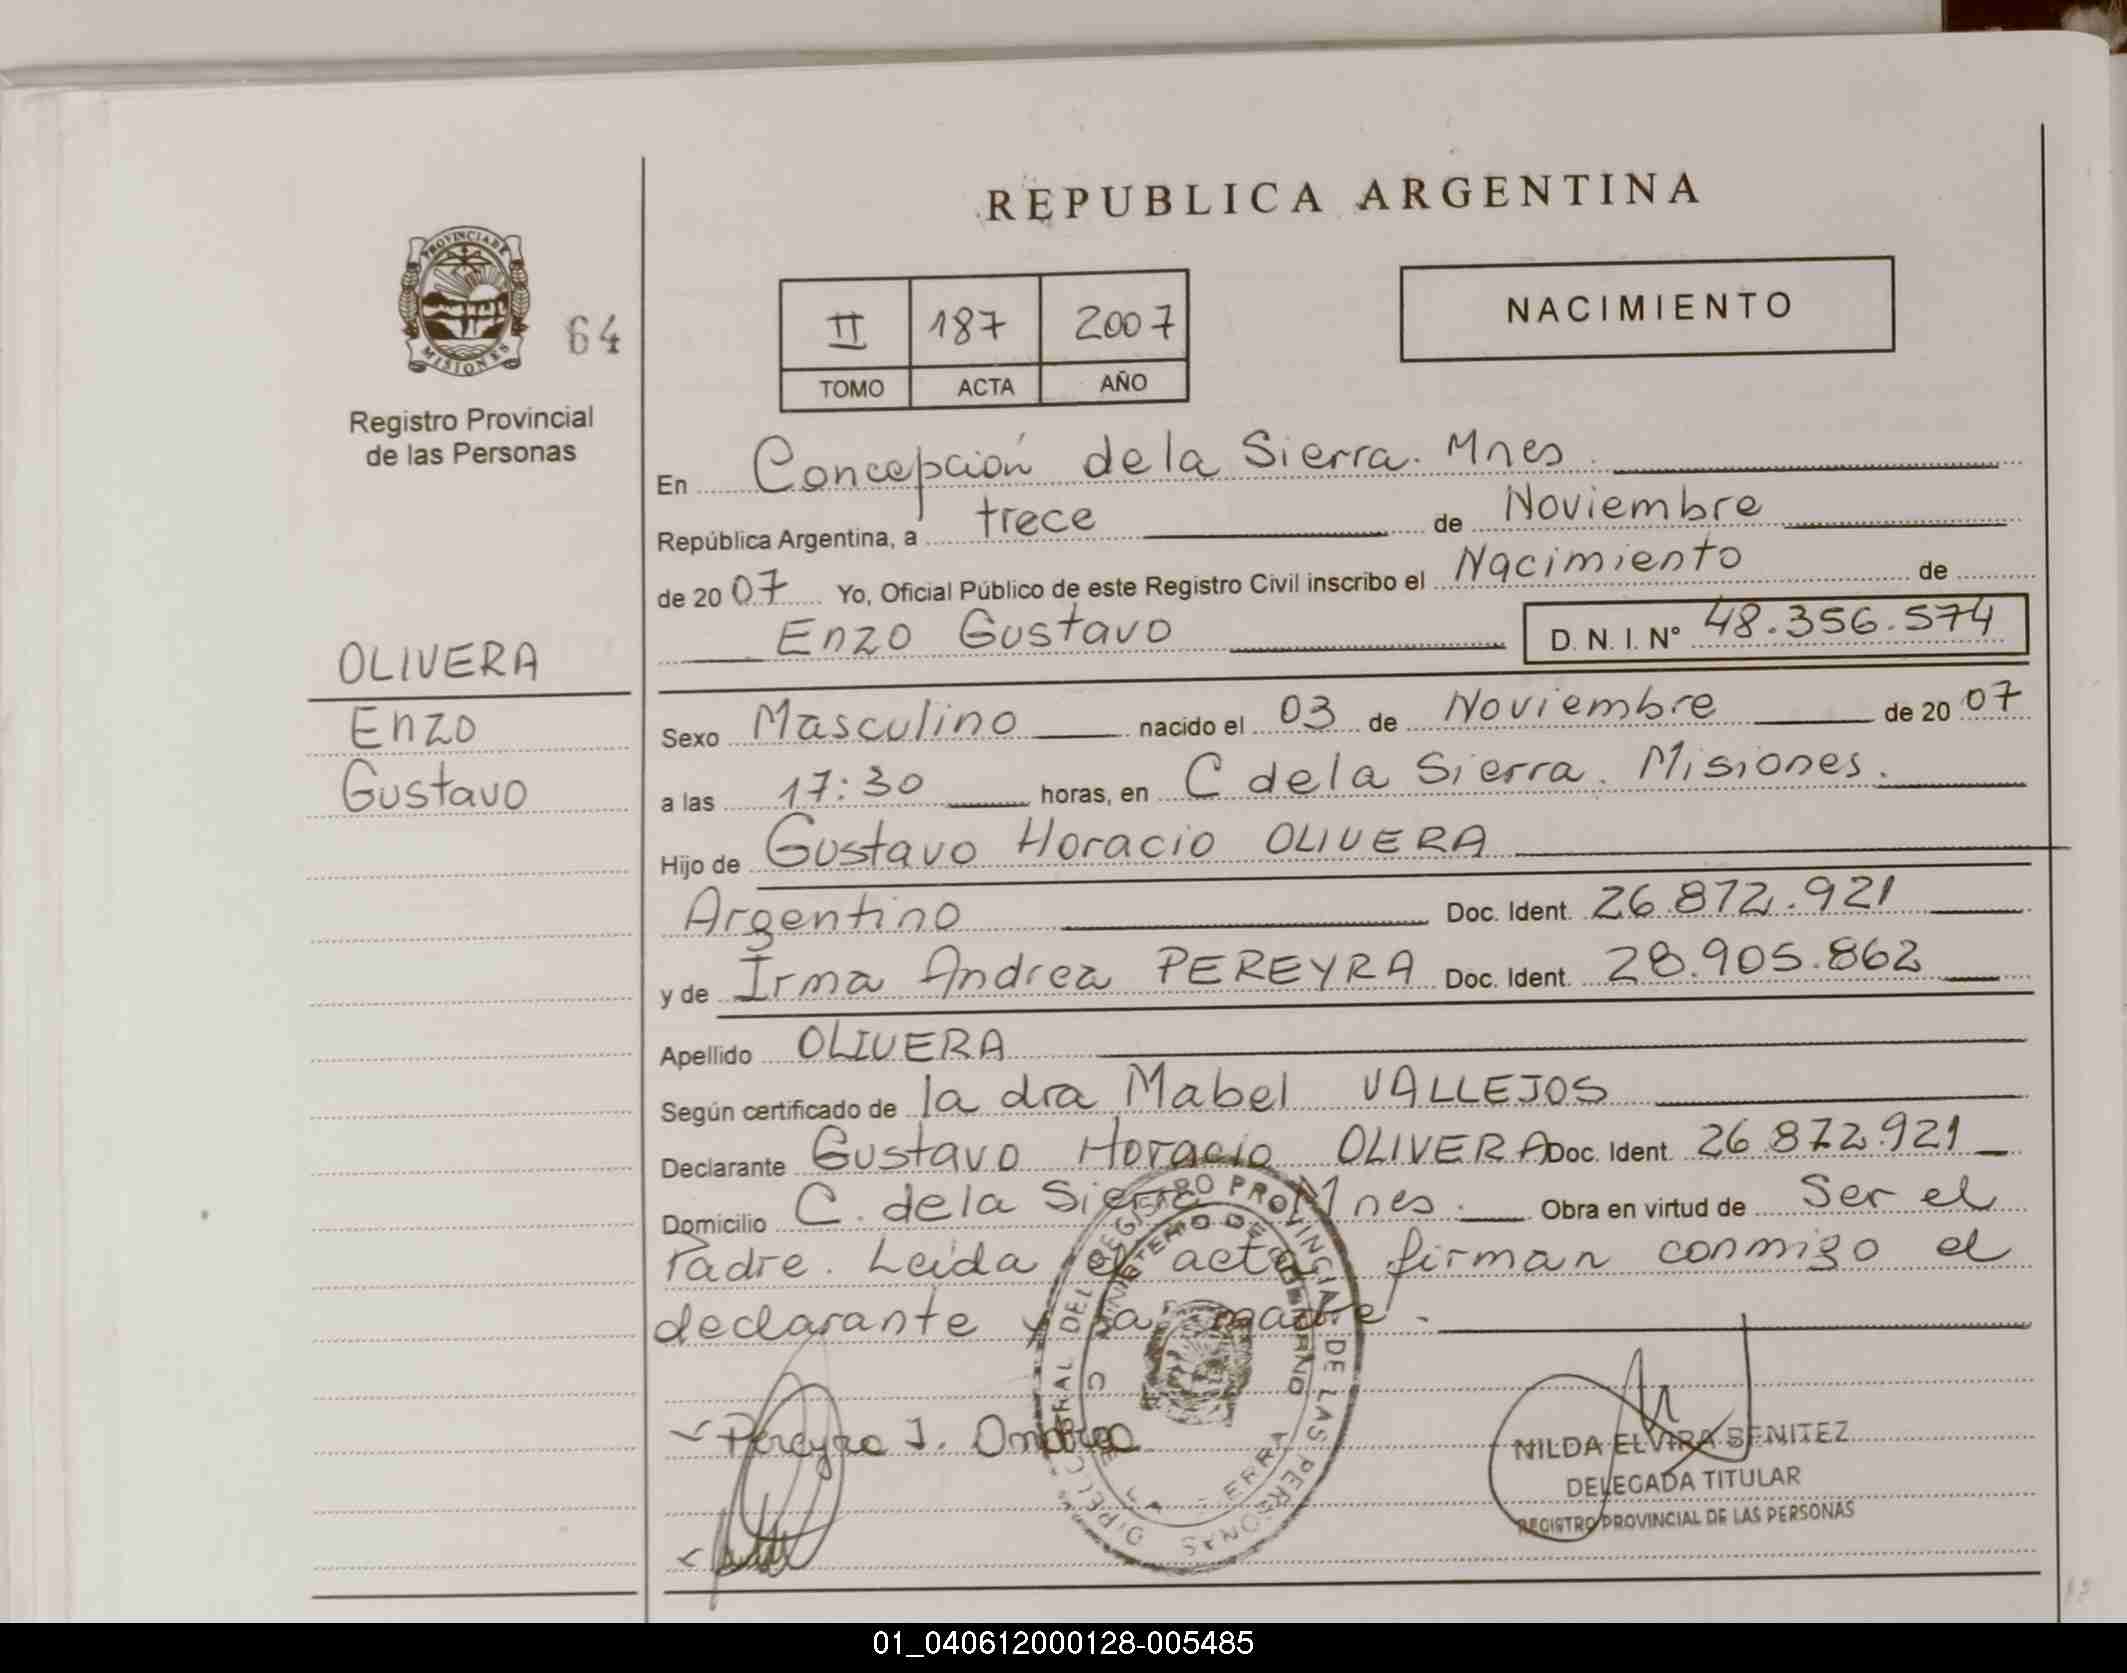 REPUBLICA ARGENTINA
PROVINCIA DE
MISIONES
64
Registro Provincial
de las Personas
II 187 2007
TOMO ACTA AÑO
NACIMIENTO
En Concepción de la Sierra. Mnes.
República Argentina, a trece de Noviembre
de 20 07 Yo, Oficial Público de este Registro Civil inscribo el Nacimiento de
Enzo Gustavo D. N. I. N° 48.356.574
OLIVERA
Enzo
Gustavo
Sexo Masculino nacido el 03 de Noviembre de 20 07
a las 17:30 horas, en C de la Sierra. Misiones.
Hijo de Gustavo Horacio OLIVERA
Argentino Doc. Ident. 26.872.921
y de Irma Andrea PEREYRA Doc. Ident. 28.905.862
Apellido OLIVERA
Según certificado de la dra Mabel VALLEJOS
Declarante Gustavo Horacio OLIVERA Doc. Ident. 26.872.921
Domicilio C. de la Sierra Mnes. Obra en virtud de Ser el
Padre. Leída el acta firman conmigo el
declarante y la madre.
Pereyra I. Andrea
REGISTRO PROVINCIAL DE LAS PERSONAS
MINISTERIO DE GOBIERNO
NILDA ELVIRA BENITEZ
DELEGADA TITULAR
REGISTRO PROVINCIAL DE LAS PERSONAS
01_040612000128-005485